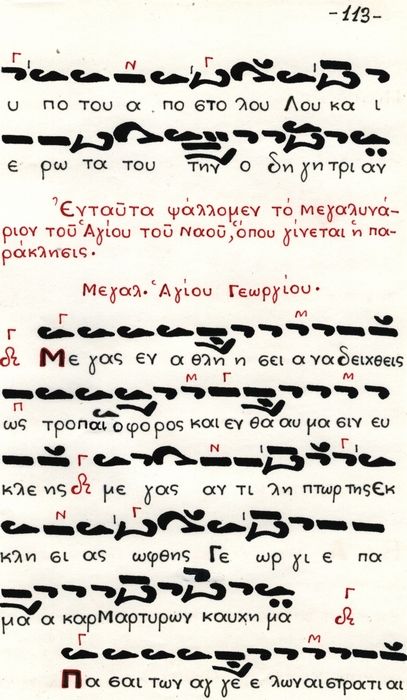 -113-
υ πο του α πο στο λου Λου κα ι
ε ρω τα του την ο δη γη τρι αν
Ἐνταῦτα ψάλλομεν τό μεγαλυνά-
ριον τοῦ Ἁγίου τοῦ Ναοῦ, ὅπου γίνεται ἡ πα-
ράκλησις.
Μεγαλ. Ἁγίου Γεωργίου.
Με γας εν α θλη η σει α να δειχθεις
ως τροπαι ο φορος και εν θα αυ μα σιν ευ
κλε ης με γας αν τι λη πτωρ της Εκ
κλη σι ας ωφθης Γε ωρ γι ε πα
μα α καρ Μαρτυρων καυχη μα
Πα σαι των αγ γε ε λων αι στρατι αι